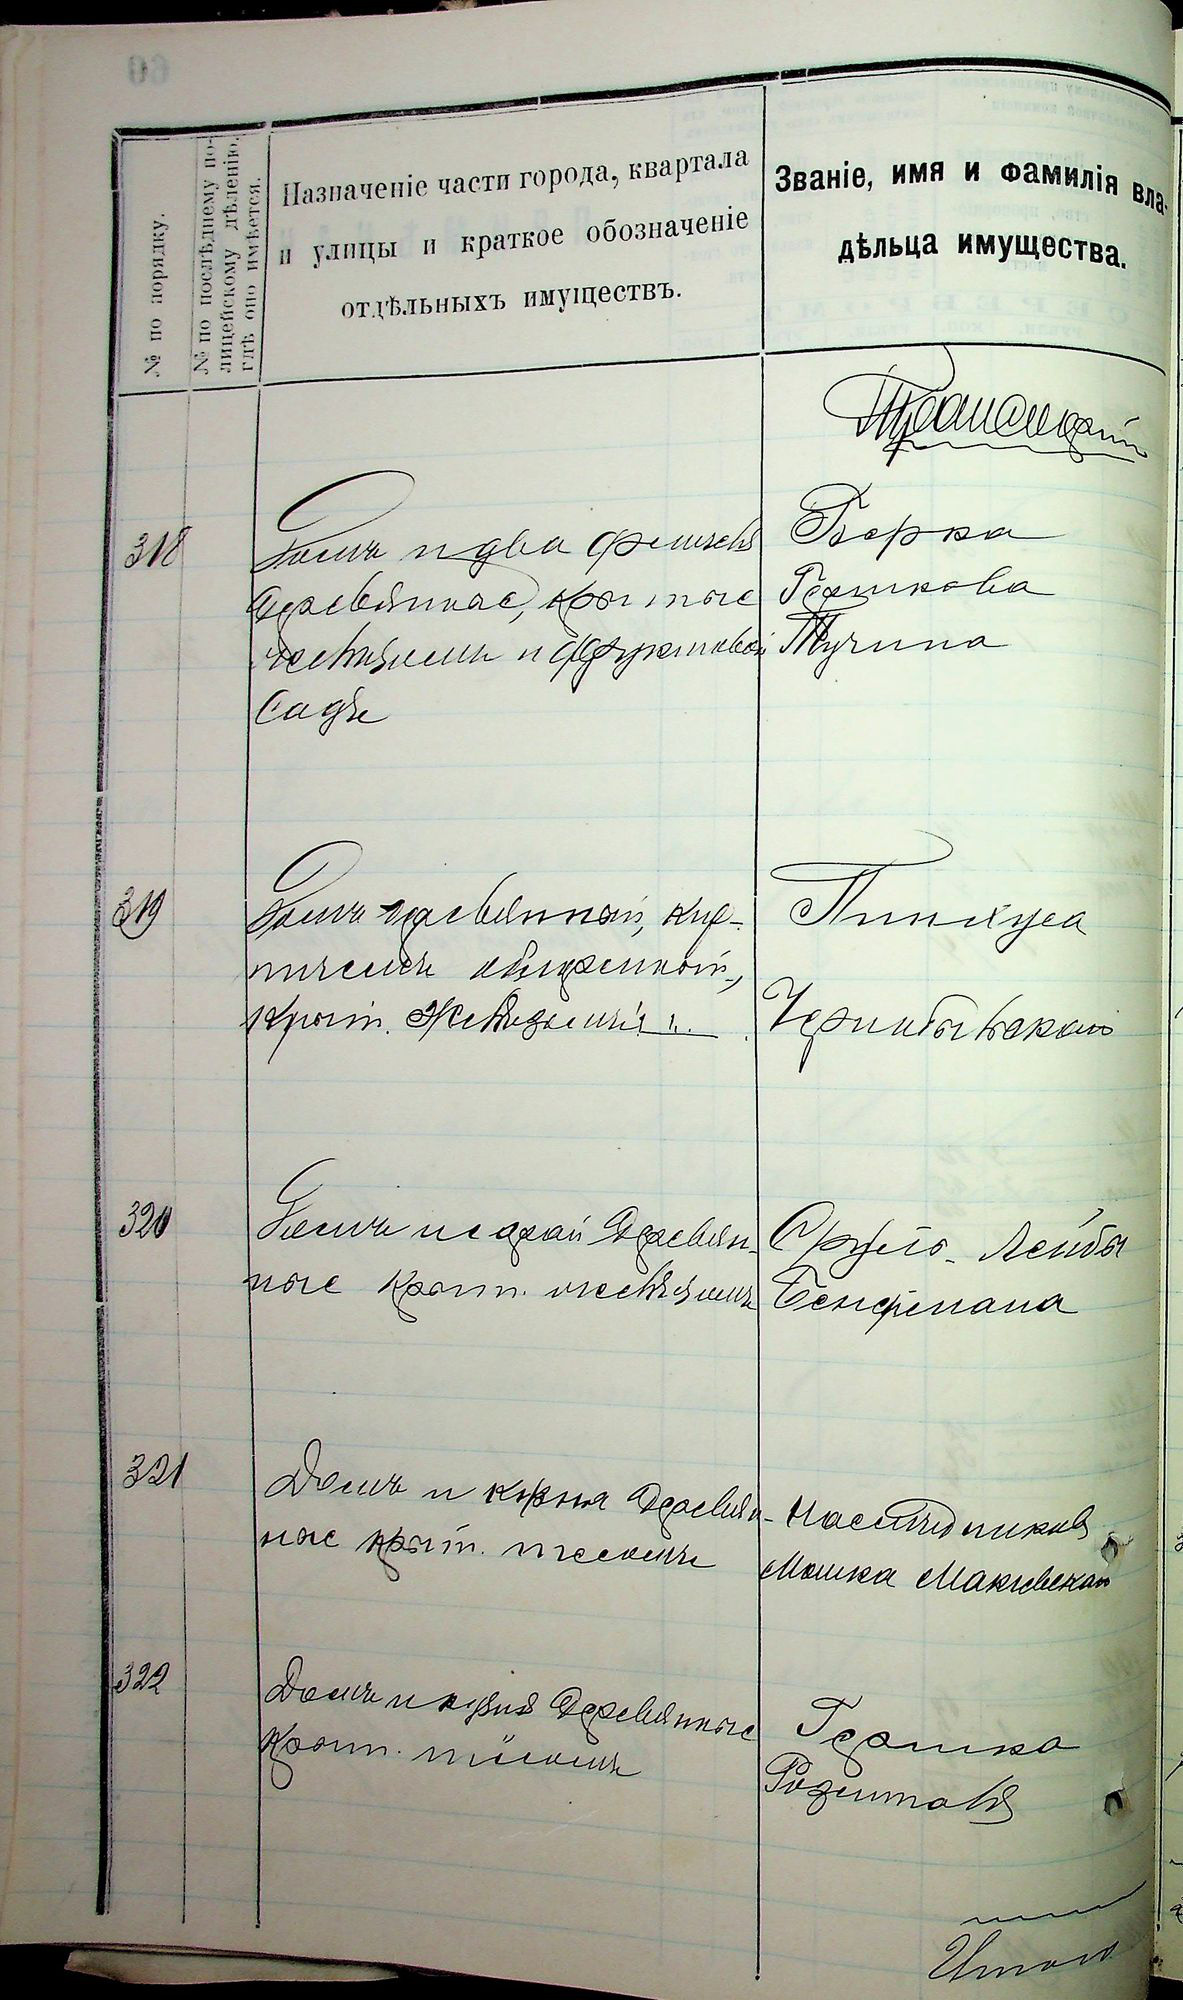 № по порядку.
№ по послѣднему по-
лицейскому дѣленію,
гдѣ оно имѣется.
Назначеніе части города, квартала
и улицы и краткое обозначеніе
отдѣльныхъ имуществъ.
Званіе, имя и фамилія вла-
дѣльца имущества.
318
Домъ и два флигеля
деревянные, крытые
желѣзомъ и фруктовой
садъ
Берка
Гершкова
Тучина
319
Домъ деревянный, кир-
пичемъ
крыт. желѣзомъ
Пинхуса
320
Домъ и сарай деревян-
ные крыт. желѣзомъ
Сруль-Лейбы
321
Домъ и кухня деревян-
ные крыт. тесомъ
Наслѣдников
Мошка
322
Домъ и кухня деревянные
крыт. тесомъ
Гершка
Итого